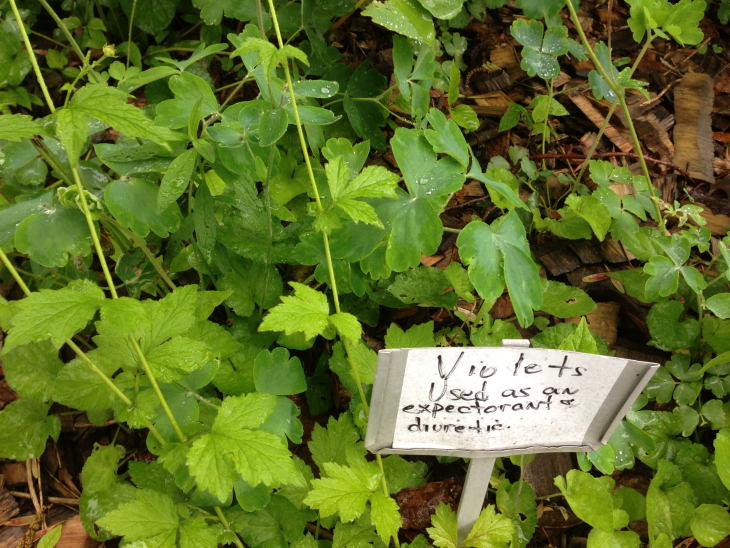 Violets
Used as an
expectorant &
diuretic.